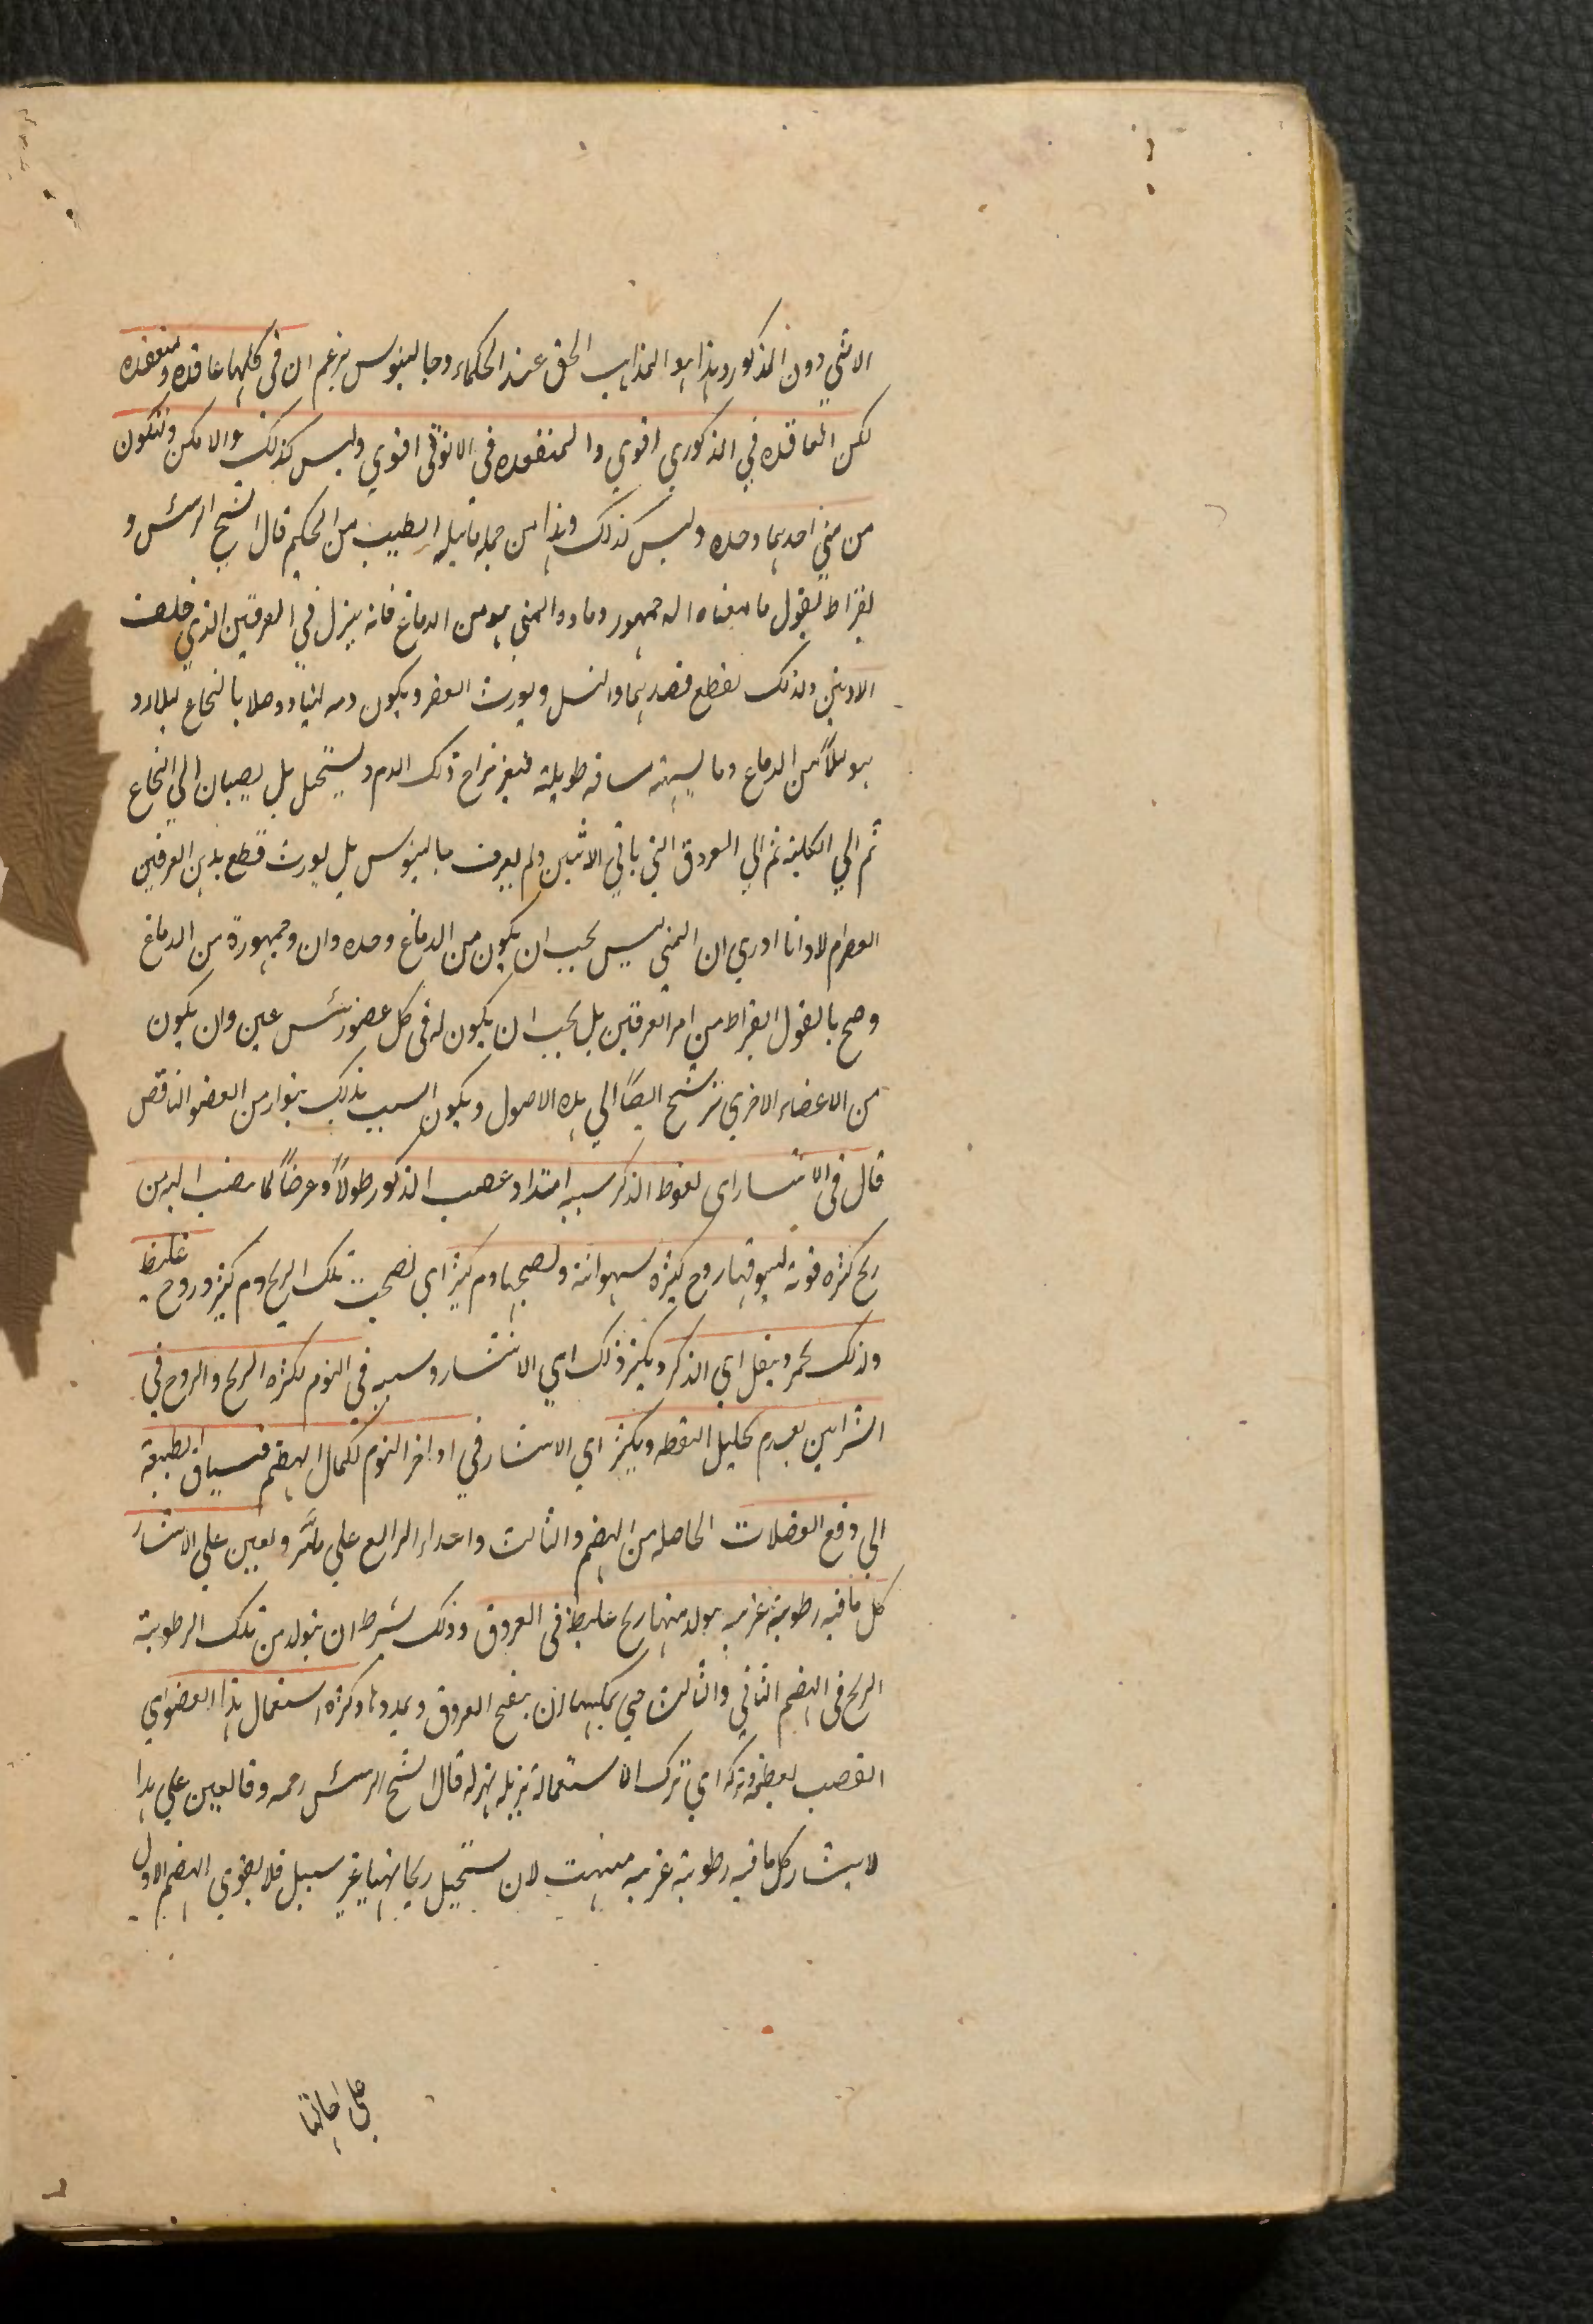 الانثي دون المذكور وهذا هو المذاهب الحق عند الحكماء وجالينوس يزعم ان في كليهما عاقده ومنعقده
لكن العاقده في الذكوري اقوي والمنعقده في الانوثي اقوي وليس كذلك والا مكن وتتكون
من مني احديهما وحده وليس كذلك وهذا من جمله الطبيب من الحكيم قال الشيخ الرئيس و
بقراط يقول ما معناه ان جمهور وماده المني هو من الدماغ فانه ينزل في العرقين الذي خلف
الاذنين ولذلك يقطع فصدهما والنسل ويورث العقر ويكون دمه لبنيا ووصلا بالنخاع ليلا
من الدماغ وما يشبهه مسافه طويلة فيغير مزاج ذلك الدم ويستحيل بل يصبان الي النخاع
ثم الي الكليه ثم الي العروق التي ياتي الانثيين ولم يعرف جالينوس بل يورث قطع هذين العرقين
العقر ام لا وانا اري ان المني ليس يجب ان يكون من الدماغ وحده وان وجمهورة من الدماغ
وصح بالقول ابقراط من امر العرقين بل يجب ان يكون له في كل عضو رئيس عين وان يكون
من الاعضاء الاخري ترشح ايضاً الي هذه الاصول ويكون السبب بذلك من العضو الناقص
قال في الانتشار اي نعوظ الذكر سببه امتداد عصب الذكور طولاً وعرضاً لما ينصب اليه من
ريح كثره قوية يسوقها روح كثيره شهوانية ويصحبها دم كثير اي يصحب تلك الريح دم كثير وروح غليظ
ولذلك يحمر ويثقل اي الذكر ويكثر ذلك اي الانتشار وسببه في النوم لكثره الريح والروح في
الشرايين بعدم تحليل اليقظه ويكثر اي الانتشار في اواخر النوم لكمال الهضم الطبيعة
الي دفع الفضلات الحاصله من الهضم والثالث واعداد الرابع علي ويعين علي الانتشار
كل ما فيه رطوبة غريبه يولد منها ريح غليظ في العروق وذلك بشرط ان يتولد من تلك الرطوبة
الريح في الهضم الثاني والثالث حتي يمكنها ان ينفخ العروق ويمددها وكثره استعمال هذا العضو اي
القضيب يعظمه وتركه اي ترك الاستعمالة يزيله يهزله قال الشيخ الرئيس رحمه وقا يعين علي هذا
لانتشار كل ما فيه رطوبة غريبه لان يستحيل ريحا غير سهل فلا يقوي الهضم الاول
علي احالتها